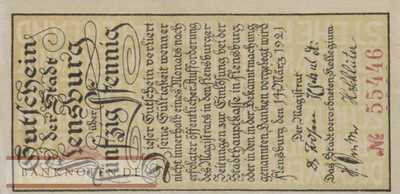 Gutschein
der Stadt
Flensburg
über
fünfzig Pfennig
Dieser Gutschein verliert
seine Gültigkeit wenn er
nicht innerhalb eines Monats nach
erfolgter öffentlicher Aufforderung
des Magistrats in den Flensburger
Zeitungen zur Einlösung bei der
Stadthauptkasse in Flensburg
oder in den in der Bekanntmachung
genannten Banken vorgelegt wird
Flensburg den 11 März 1921
Der Magistrat
Das Stadtverordneten Kollegium
№ 55446
BANKNOTEN.DE